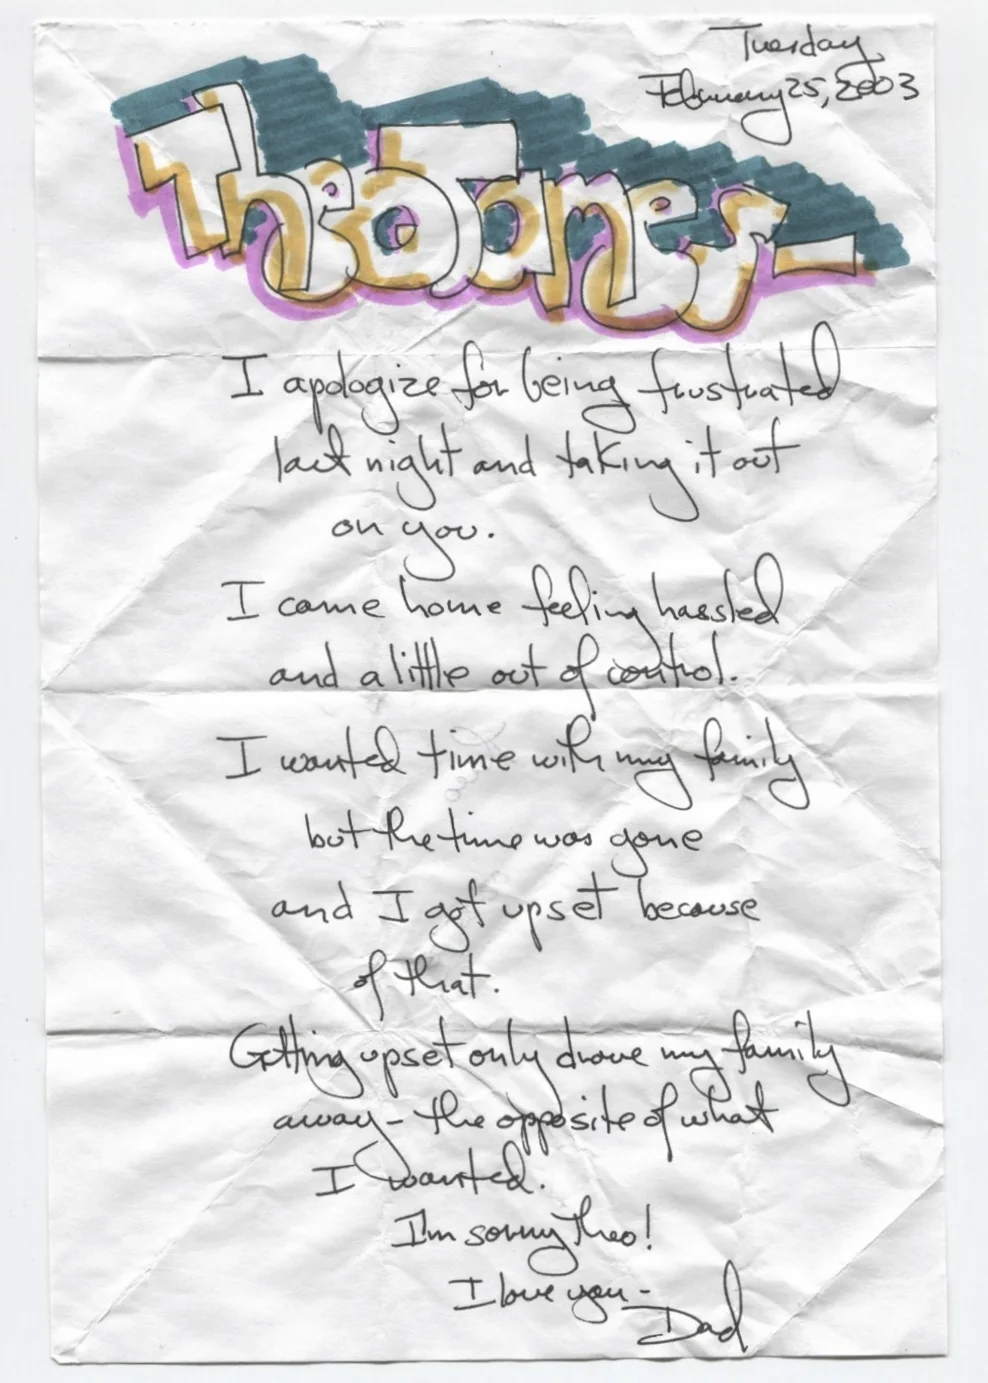 Tuesday
February 25, 2003
Theo James—
I apologize for being frustrated
last night and taking it out
on you.
I came home feeling hassled
and a little out of control.
I wanted time with my family
but the time was gone
and I got upset because
of that.
Getting upset only drove my family
away – the opposite of what
I wanted.
I'm sorry Theo!
I love you –
Dad